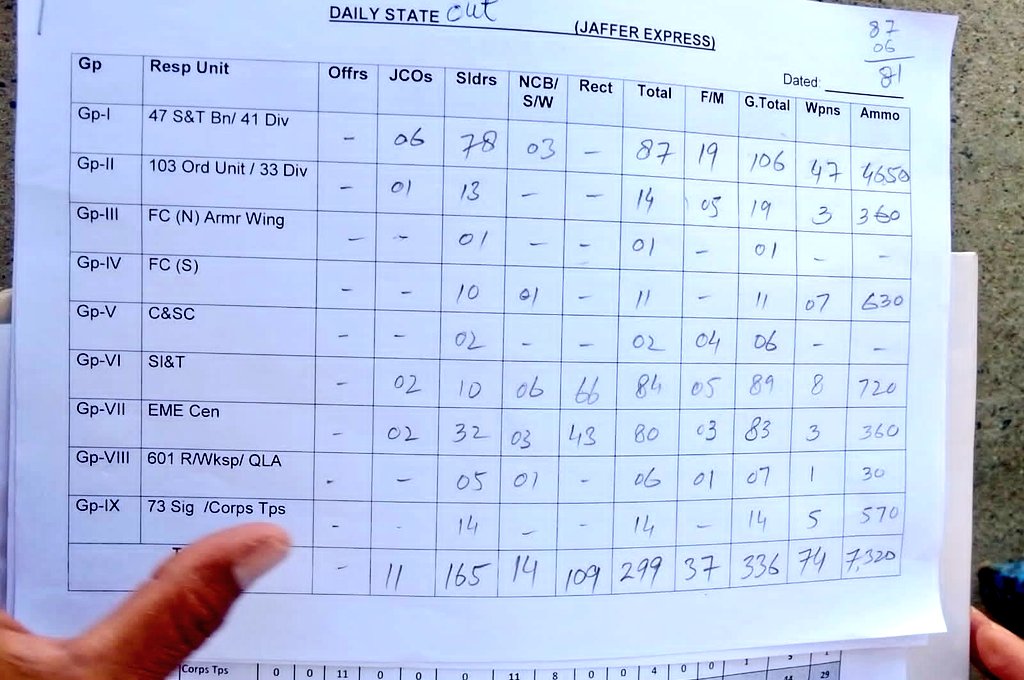 DAILY STATE out (JAFFER EXPRESS)
87
06
81
Dated:
Gp Resp Unit Offrs JCOs Sldrs NCB/ S/W Rect Total F/M G.Total Wpns Ammo
Gp-I 47 S&T Bn/ 41 Div - 06 78 03 - 87 19 106 47 4650
Gp-II 103 Ord Unit / 33 Div - 01 13 - - 14 05 19 3 360
Gp-III FC (N) Armr Wing - - 01 - - 01 - 01 - -
Gp-IV FC (S) - - 10 01 - 11 - 11 07 630
Gp-V C&SC - - 02 - - 02 04 06 - -
Gp-VI SI&T - 02 10 06 66 84 05 89 8 720
Gp-VII EME Cen - 02 32 03 43 80 03 83 3 360
Gp-VIII 601 R/Wksp/ QLA - - 05 01 - 06 01 07 1 30
Gp-IX 73 Sig /Corps Tps - - 14 - - 14 - 14 5 570
- 11 165 14 109 299 37 336 74 7,320
Corps Tps 0 0 11 0 0 0 11 8 0 0 4 0 0 1
29